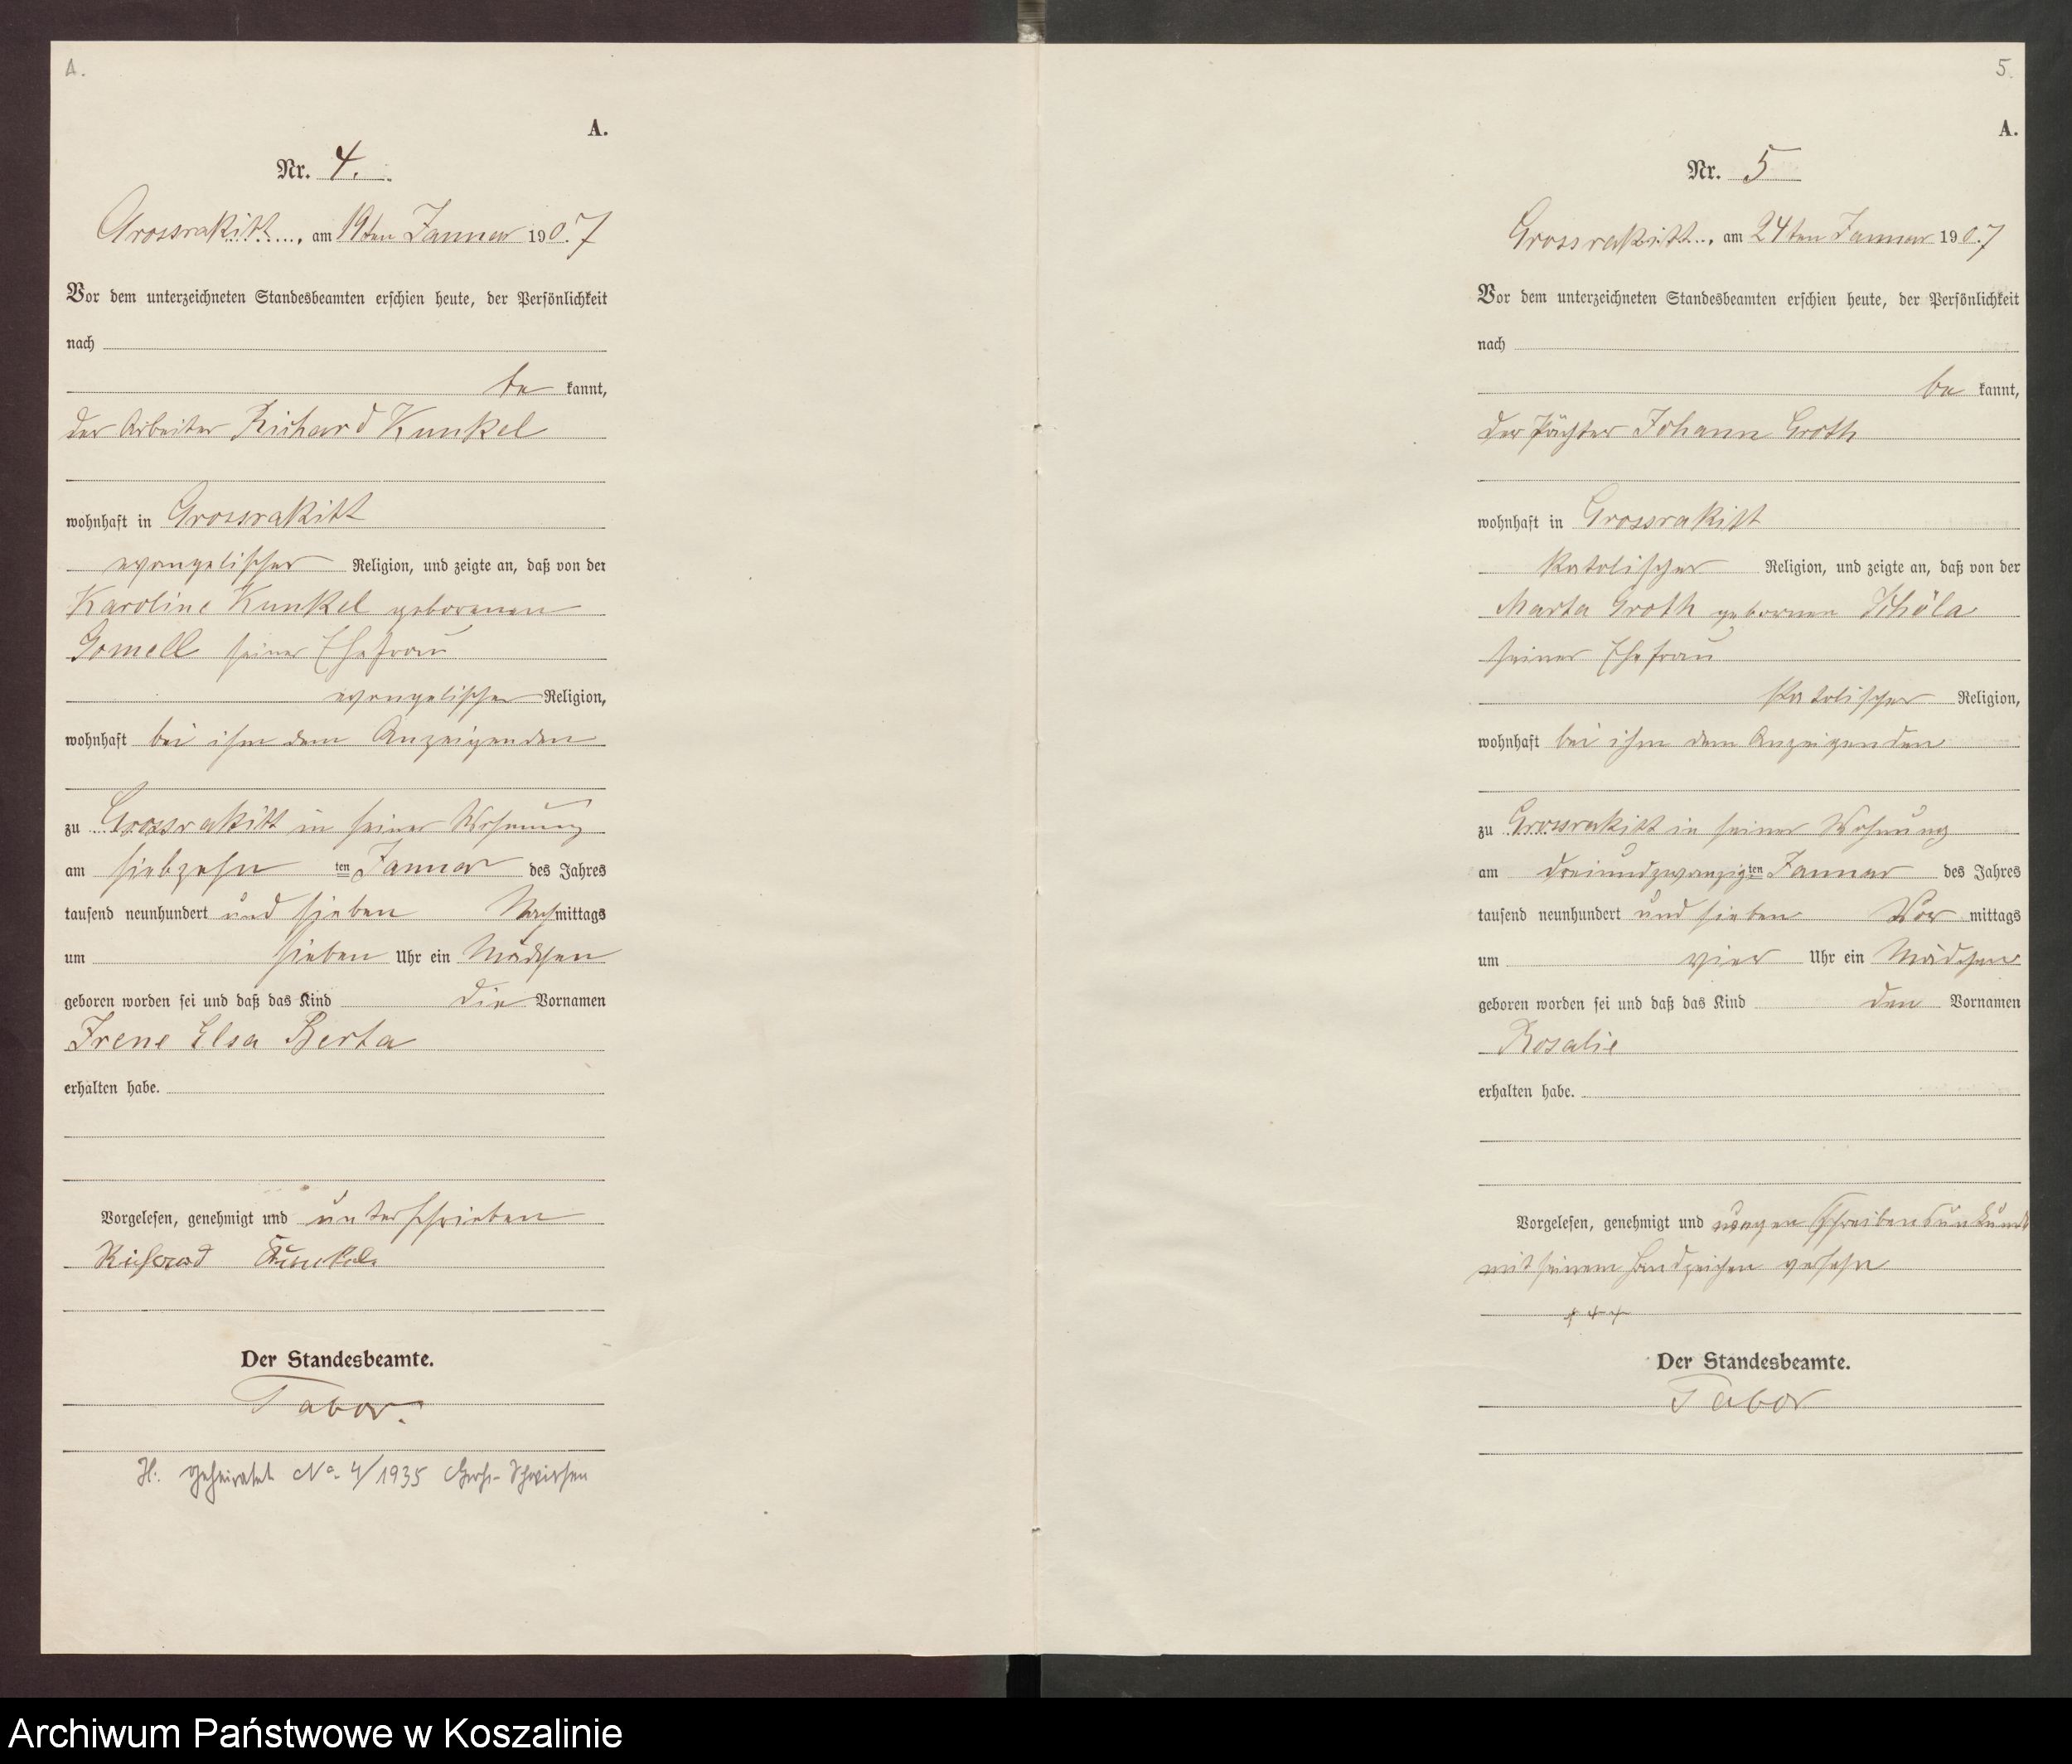 4.
A.
Nr. 4.
Grossrakitt, am 19ten Januar 1907
Vor dem unterzeichneten Standesbeamten erschien heute, der Persönlichkeit
nach
be kannt,
der Arbeiter Richard Kunkel
wohnhaft in Grossrakitt
evangelischer Religion, und zeigte an, daß von der
Karoline Kunkel geborenen
Gomell seiner Ehefrau
evangelischer Religion,
wohnhaft bei ihm dem Anzeigenden
zu Grossrakitt in seiner Wohnung
am siebzehn ten Januar des Jahres
tausend neunhundert und sieben Nachmittags
um sieben Uhr ein Mädchen
geboren worden sei und daß das Kind die Vornamen
Irene Elsa Berta
erhalten habe.
Vorgelesen, genehmigt und unterschrieben
Richard Kunkel
Der Standesbeamte.
Tabor.
H. geheiratet No. 4/1935
5.
A.
Nr. 5
Grossrakitt, am 24ten Januar 1907
Vor dem unterzeichneten Standesbeamten erschien heute, der Persönlichkeit
nach
be kannt,
der Pächter Johann Groth
wohnhaft in Grossrakitt
katolischer Religion, und zeigte an, daß von der
Marta Groth gebornen Schöla
seiner Ehefrau
katolischer Religion,
wohnhaft bei ihm dem Anzeigenden
zu Grossrakitt in seiner Wohnung
am dreiundzwanzig ten Januar des Jahres
tausend neunhundert und sieben Vor mittags
um vier Uhr ein Mädchen
geboren worden sei und daß das Kind den Vornamen
Rosalie
erhalten habe.
Vorgelesen, genehmigt und wegen Schreibensunkunde
mit seinem Handzeichen versehn
+ + +
Der Standesbeamte.
Tabor
Archiwum Państwowe w Koszalinie